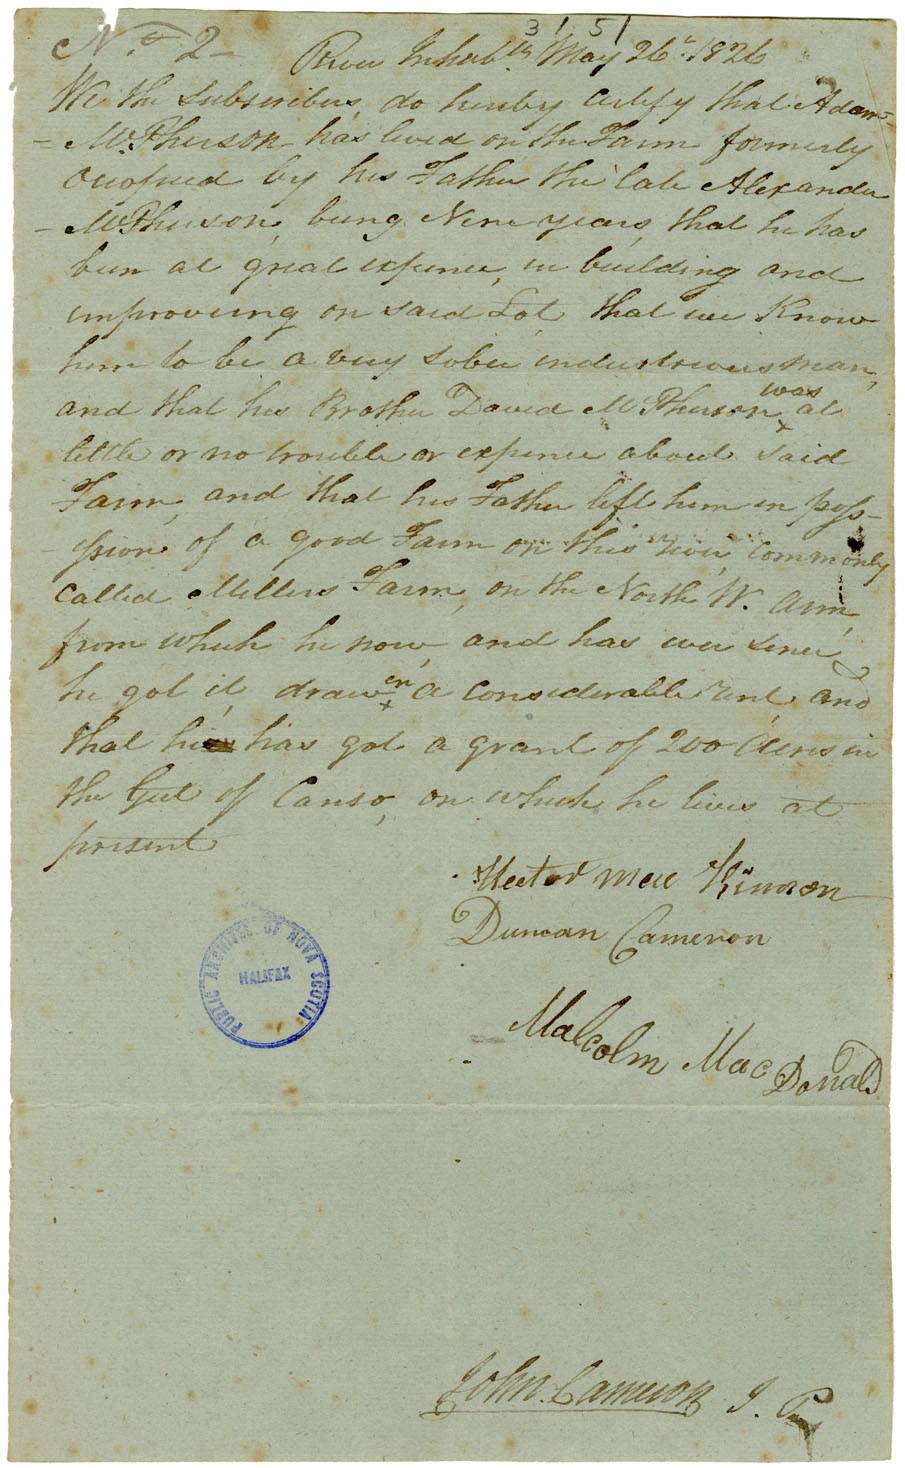 3151
No 2 River Inhabts May 26th 1826
We the Subscribers, do hereby certify that Adam
- McPherson has lived on the Farm formerly
Occupied by his Father the late Alexander
- McPherson, being Nine years, that he has
been at great expence, in building and
improveing on said Lot, that we Know
him to be a very sober industrious man,
and that his Brother David McPherson was at
little or no trouble or expence about said
Farm, and that his Father left him in poss-
-ession of a good Farm on this river, commonly
called Millers Farm, on the North W. arm,
from which he now, and has ever since,
he got it, drawen a considerable rent, and
that he has got a grant of 200 Acres in
the Gut of Canso, on which he lives at
present
Hector Mac Kinnon
Duncan Cameron
Malcolm MacDonald
PUBLIC ARCHIVES OF NOVA SCOTIA
HALIFAX
John Cameron J. P.